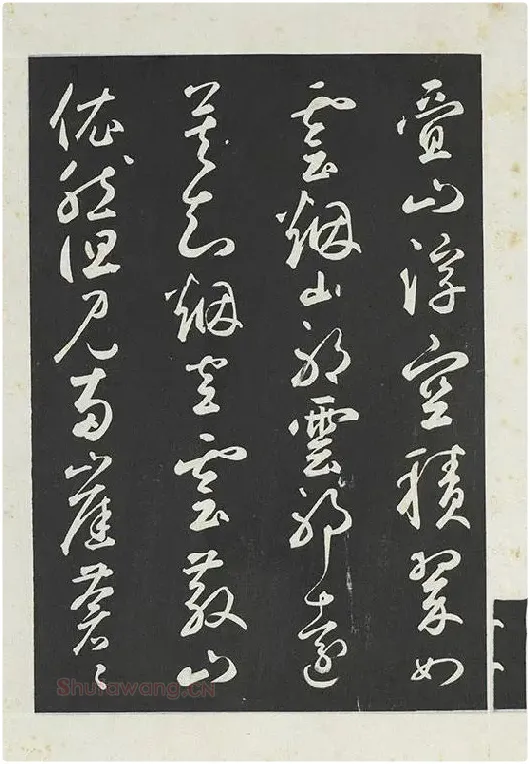 叠山浮空積翠如
雲煙山耶雲耶遠
莫知煙空雲散山
依然但見兩崖蒼々
Shufawang.CN